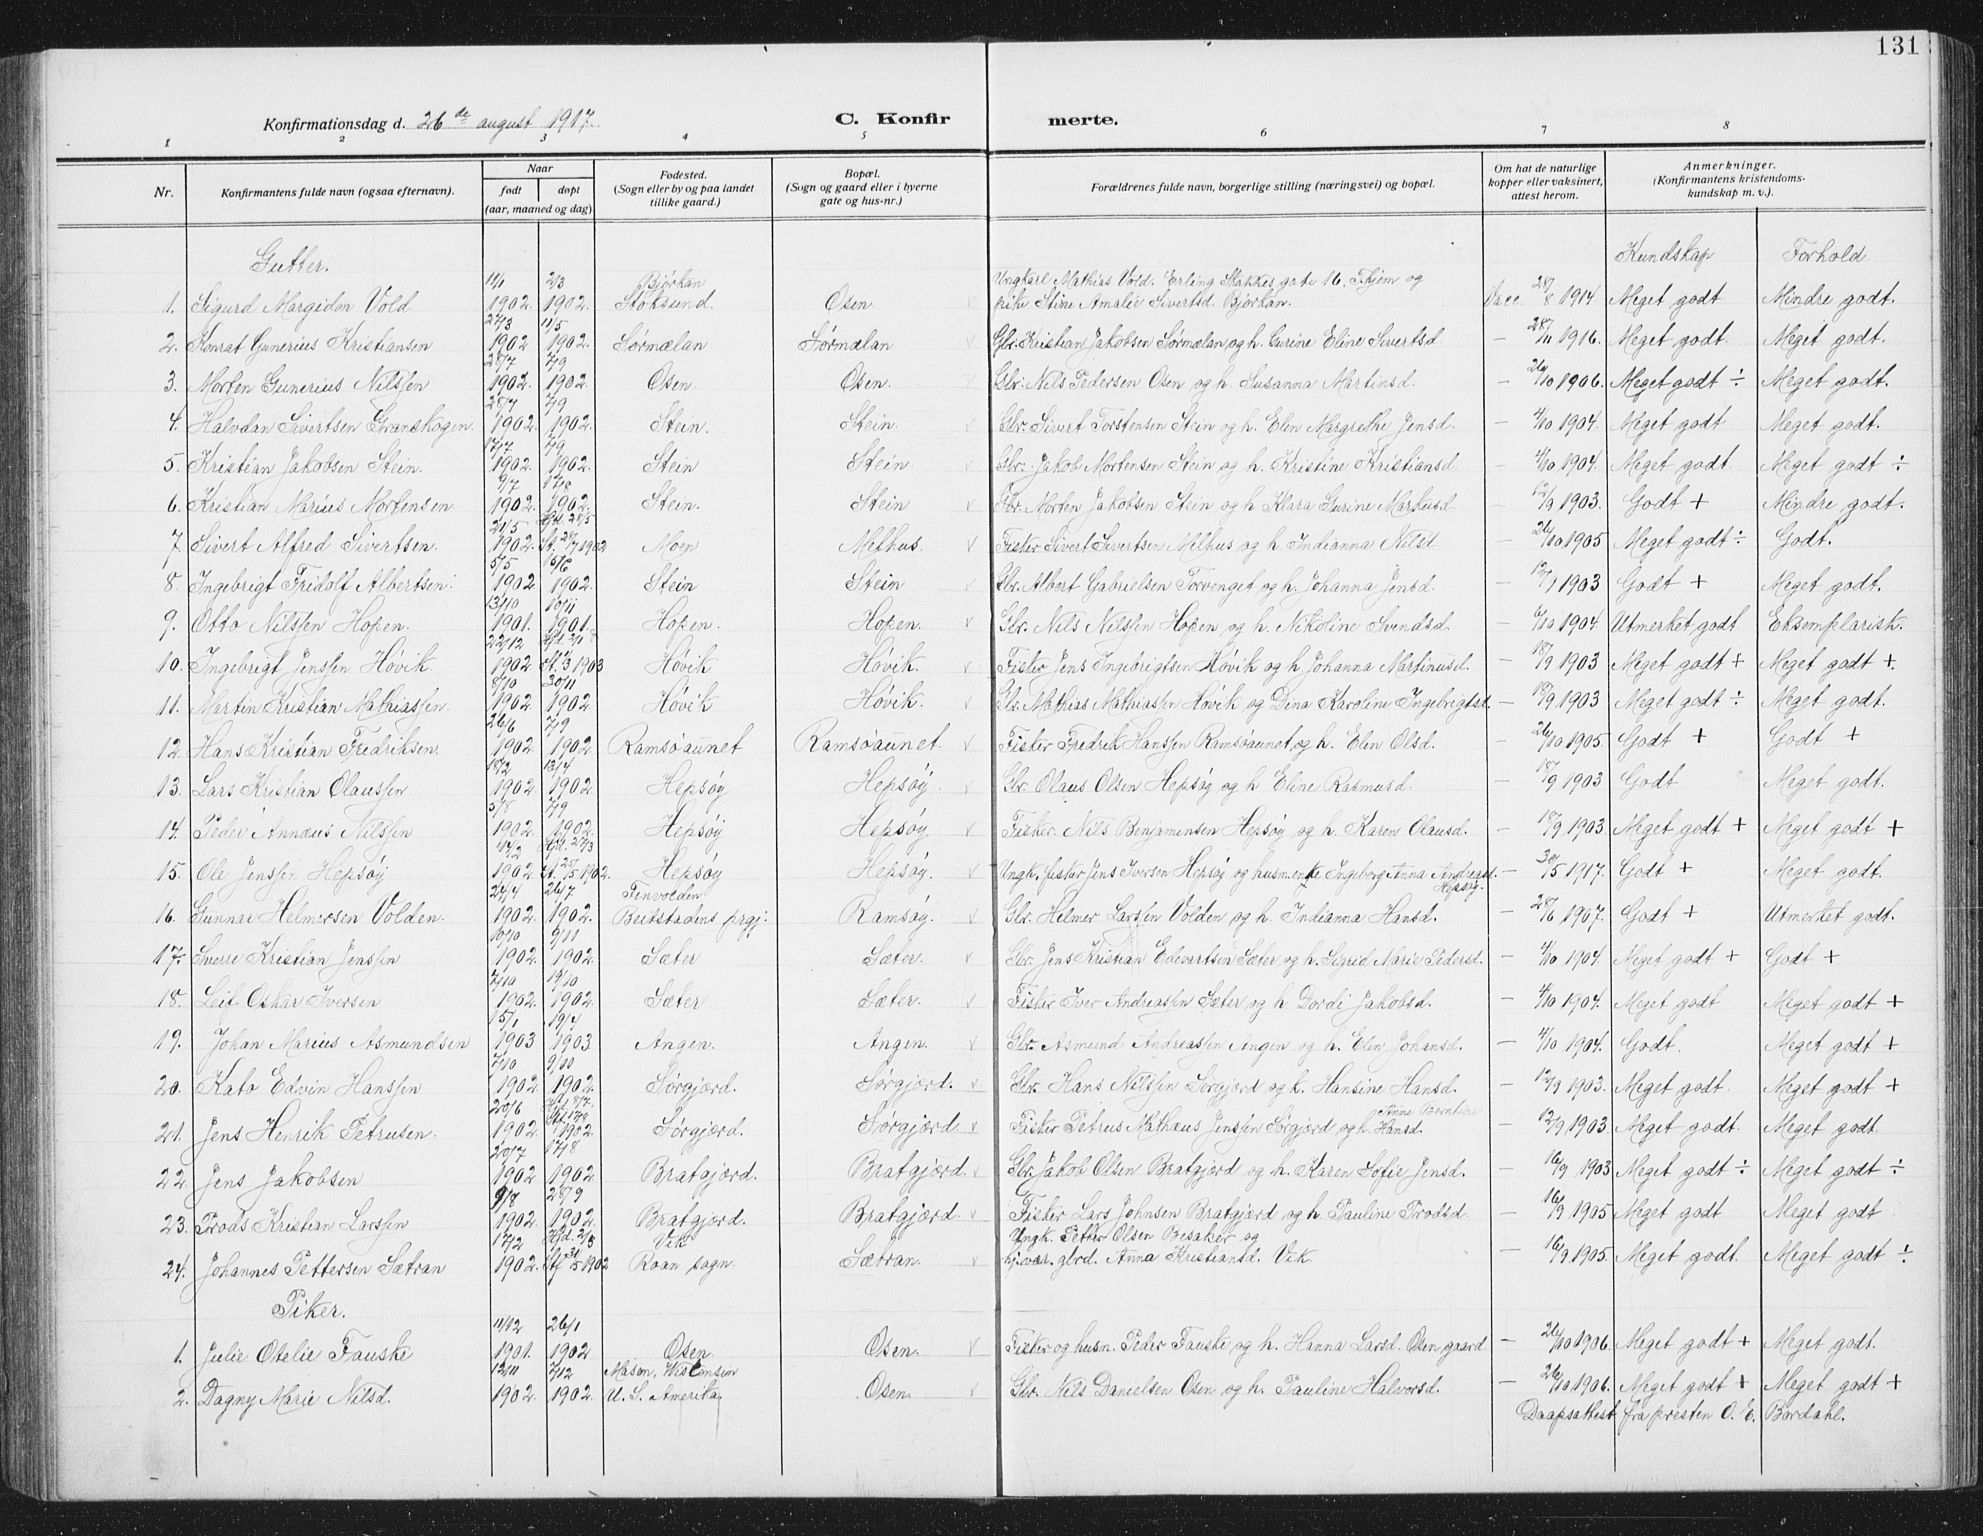 131
Konfirmationsdag d. 26de august 1917. C. Konfirmerte.
1 2 3 4 5 6 7 8
Nr. Konfirmantens fulde navn (ogsaa efternavn). Naar født døpt (aar, maaned og dag) Fødested. (Sogn eller by og paa landet tillike gaard.) Bopæl. (Sogn og gaard eller i byerne gate og hus-nr.) Forældrenes fulde navn, borgerlige stilling (næringsvei) og bopæl. Om hat de naturlige kopper eller vaksinert, attest herom. Anmerkninger. (Konfirmantens kristendomskundskap m. v.).
Gutter. Kundskap Forhold
1. Sigurd Margidon Vold 11/1 1902. 2/3 1902. Bjørkan Stoksund. Osen. Ungkarl Mathias Vold. Erling Skakkes gate 16, Thjem og pike Stine Amalie Sivertsd. Bjørkan. Vacc. 28/8 1914 Meget godt Mindre godt.
2. Konrat Gunerius Kristiansen 27/3 1902 11/5 1902. Sørmælan Sørmælan Gbr. Kristian Jakobsen Sørmælan og h. Gurine Eline Sivertsd. — 1916. Meget godt. Meget godt.
3. Morten Gunerius Nilssen 28/7 1902. 7/9 1902. Osen Osen. Gbr. Nils Pedersen Osen og h. Susanna Martinsd. — 26/10 1906. Meget godt ÷ Meget godt.
4. Halvdan Sivertsen Granskogen. 28/7 1902. 7/9 1902. Stein. Stein. Gbr. Sivert Torstensen Stein og h. Elen Margrethe Jensd. — 4/10 1904. Meget godt Meget godt.
5. Kristian Jakobsen Stein. 17/7 1902. 7/9 1902. Stein Stein Gbr. Jakob Mortensen Stein og h. Kristine Kristiansd. — 4/10 1904. Meget godt. Meget godt ÷
6. Kristian Marius Mortensen 9/7 1902. 17/8 1902. Stein. Stein Gbr. Morten Jakobsen Stein og h. Klara Gurine Markusd — 12/9 1903. Godt + Mindre godt.
7. Sivert Alfred Sivertsen. 21/5 1902. Hjd. 28/5 St. 28/7 1902 Moen Melhus. Fisker Sivert Sivertsen Melhus og h. Indianna Nilsd — 26/10 1905 Meget godt ÷ Godt.
8. Ingebrigt Fridolf Albertsen. 5/5 1902 15/6 1902. Stein Stein Gbr. Albert Gabrielsen Torvenget og h. Johanna Jensd. — 1903 Godt + Meget godt.
9. Otto Nilssen Hopen. 13/10 1901. 10/11 1901. Hopen. Hopen. Gbr. Nils Nilssen Hopen og h. Nikoline Svendsd. — 6/10 1904. Utmerket godt Eksemplarisk.
10. Ingebrigt Jenssen Høvik 22/12 1902 1903 Høvik Høvik. Fisker Jens Ingebrigtsen Høvik og h. Johanna Martinusd. — 18/9 1903 Meget godt + Meget godt +.
11. Martin Kristian Mathiassen. 8/10 1902. 30/11 1902. Høvik Høvik. Gbr. Mathias Mathiassen Høvik og Dina Karoline Ingebrigtsd. — 18/9 1903 Meget godt ÷ Meget godt.
12. Hans Kristian Fredriksen. 26/6 1902. 7/9 1902. Ramsøaunet Ramsøaunet. Fisker Fredrik Hanssen Ramsøaunet og h. Elen Olsd. — 26/10 1905. Godt + Godt +
13. Lars Kristian Olaussen 18/2 1902 13/4 1902. Hepsøy Hepsøy. Gbr. Olaus Olsen Hepsøy og h. Eline Rasmusd. — 18/9 1903 Godt Meget godt.
14. Peder Annæus Nilssen 5/8 1902. 7/9 1902. Hepsøy Hepsøy. Fisker. Nils Benjaminsen Hepsøy og h. Karen Olausd. — 18/9 1903 Meget godt + Meget godt +
15. Ole Jenssen Hepsøy 18/2 1902 Hjd. 27/3 St. 25/5 1902. Hepsøy Hepsøy. Ungk. fisker Jens Iversen Hepsøy og husmenke Ingeborg Anna Andreasd. Hepsøy. — 30/5 1917. Godt + Meget godt.
16. Gunnar Helmersen Volden. 24/4 1902. 26/7 1902. Tinvolden Beitstadens prgj. Ramsøy. Gbr. Helmer Larssen Volden og h. Indianna Hansd. — 28/6 1907. Godt + Utmerket godt.
17. Sverre Kristian Jenssen 10/10 1902. 9/11 1902. Sæter Sæter. Gbr. Jens Kristian Edvartsen Sæter og h. Sigrid Marie Pedersd. — 4/10 1904. Meget godt + Godt +
18. Leif Oskar Iversen 7/10 1902. 19/10 1902. Sæter Sæter. Fisker Iver Andreassen Sæter og h. Dordi Jakobsd. — 4/10 1904. Meget godt Meget godt +
19. Johan Marius Asmundsen 15/1 1903 19/4 1903 Angen. Angen. Gbr. Asmund Andreassen Angen og h. Elen Johansd. — 4/10 1904. Godt. Meget godt +
20. Kato Edvin Hanssen 7/10 1902 1902. Sørgjærd. Sørgjærd. Gbr. Hans Nilssen Sørgjerd og h. Hansine Hansd. — 12/9 1903. Meget godt. Meget godt +
21. Jens Henrik Petrusen. 20/6 1902. Hjd. 8/7 St. 17/8 1902. Sørgjærd. Sørgjærd. Fisker Petrus Mathæus Jenssen Sørgjerd og h. Anne Berntine Hansd. — 12/9 1903. Meget godt. Meget godt
22. Jens Jakobsen 20/7 1902 17/8 1902 Bratgjærd. Bratgjærd. Gbr. Jakob Olsen Bratgjerd og h. Karen Sofie Jensd. — 16/9 1903 Meget godt ÷ Meget godt ÷
23. Trods Kristian Larssen 9/8 1902. 28/9 1902. Bratgjærd. Bratgjærd. Fisker Lars Johnsen Bratgjærd og h. Pauline Trodsd. — 16/9 1905 Meget godt Meget godt
24. Johannes Pettersen Sætran 17/2 1902. Hjd. 2/3 Stf. 31/5 1902 Vik Roan sogn. Sætran. Ungk. Petter Olsen Besaker og hj.vær. gbrd. Anna Kristiansd. Vik. — 16/9 1905. Meget godt. Meget godt ÷
Piker.
1. Julie Otelie Fauske 11/12 1901. 26/1 1902 Osen Osen. Fisker og husm. Peder Fauske og h. Hanna Larsd. Osen gaard — 26/10 1906. Meget godt + Meget godt.
2. Dagny Marie Nilsd. 12/11 1902. 7/12 1902. Mason, Wisconsin U. S. Amerika. Osen. Gbr. Nils Danielsen Osen og h. Pauline Halvorsd. — 26/10 1906. Meget godt + Meget godt +
Daapsattest fra presten O. E. Bordahl.